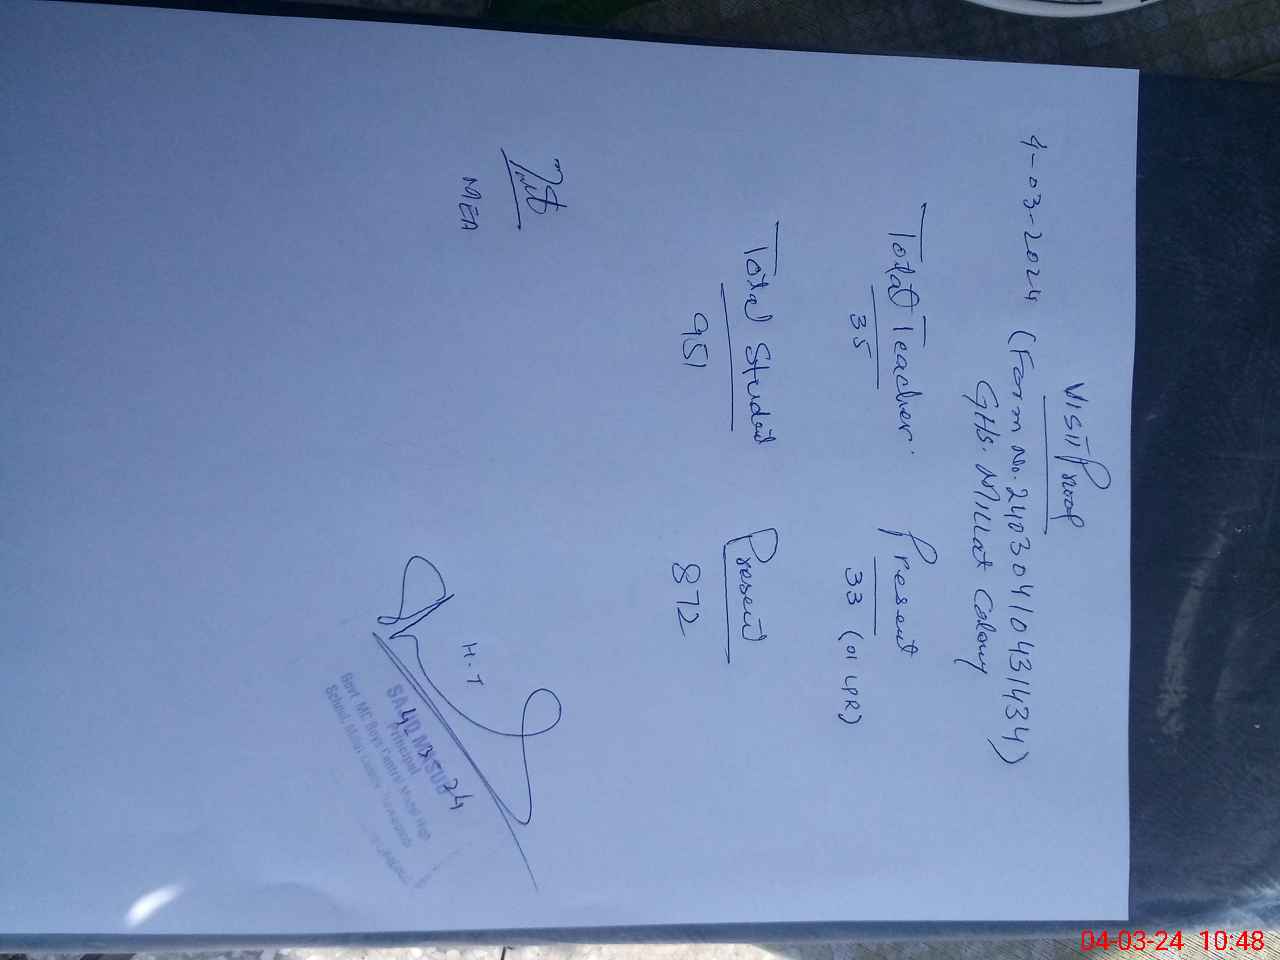 Visit Proof
4-03-2024 (Form No. 24030410431434)
GHS. Millat Colony
Total Teacher. Present
35 33 (01 LPR)
Total Student Present
951 872
MEA
H.T
SAJID MASUD
Principal
Govt. MC Boys Central Model High
School, Millat Colony
04-03-24 10:48